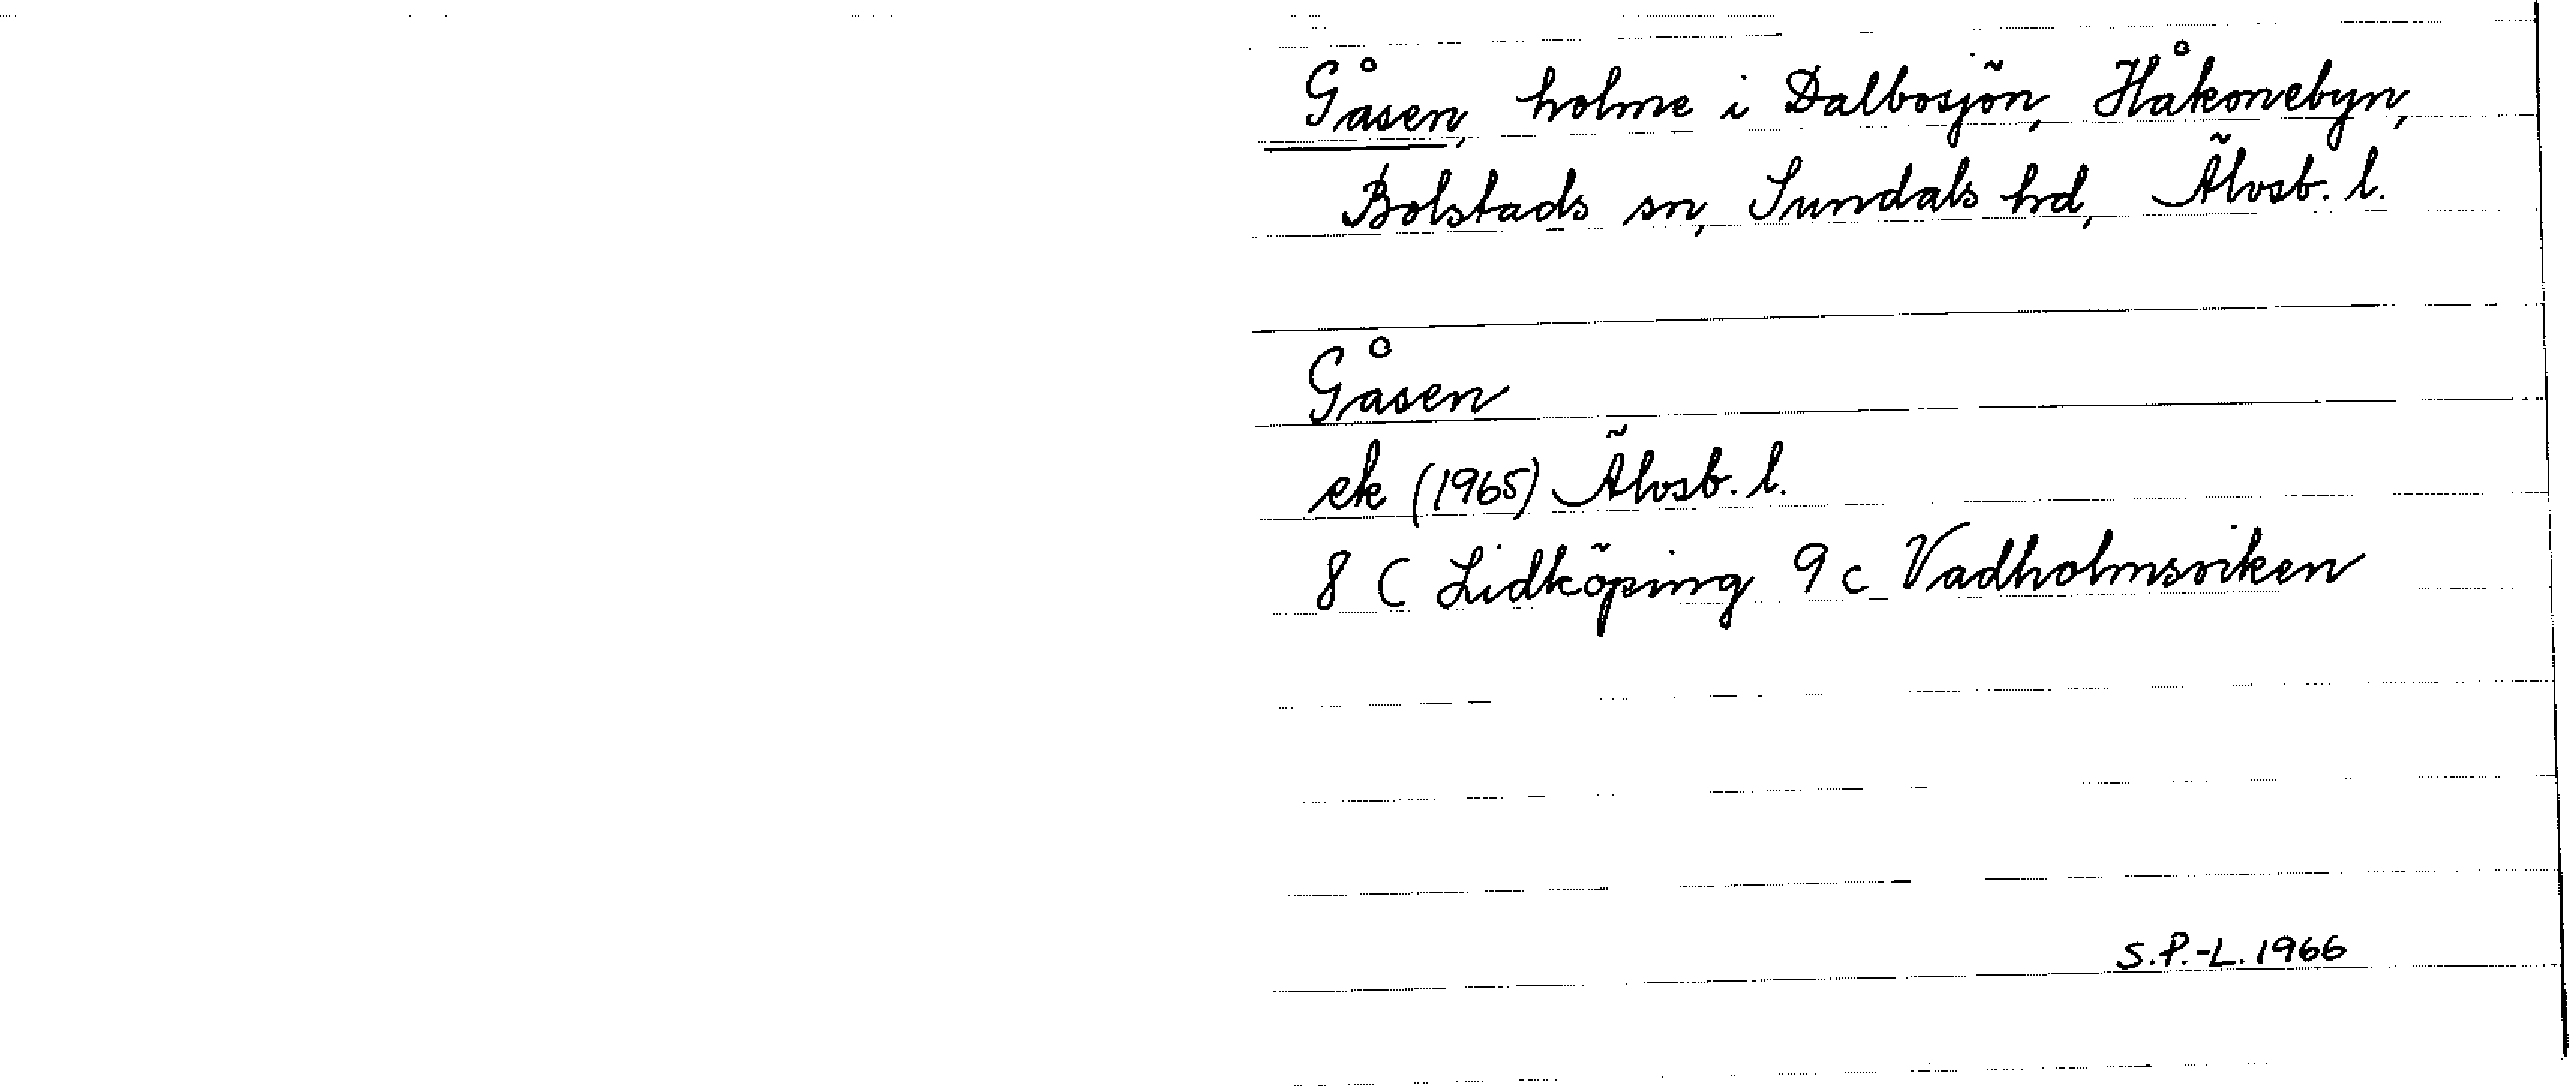 Gåsen, holme i Dalbosjön, Håkonebyn,
Bolstads sn, Sundals hd, Älvsb. l.
Gåsen
ek (1965) Älvsb. l.
8 C Lidköping 9 c Vadholmsviken
S.P.-L. 1966